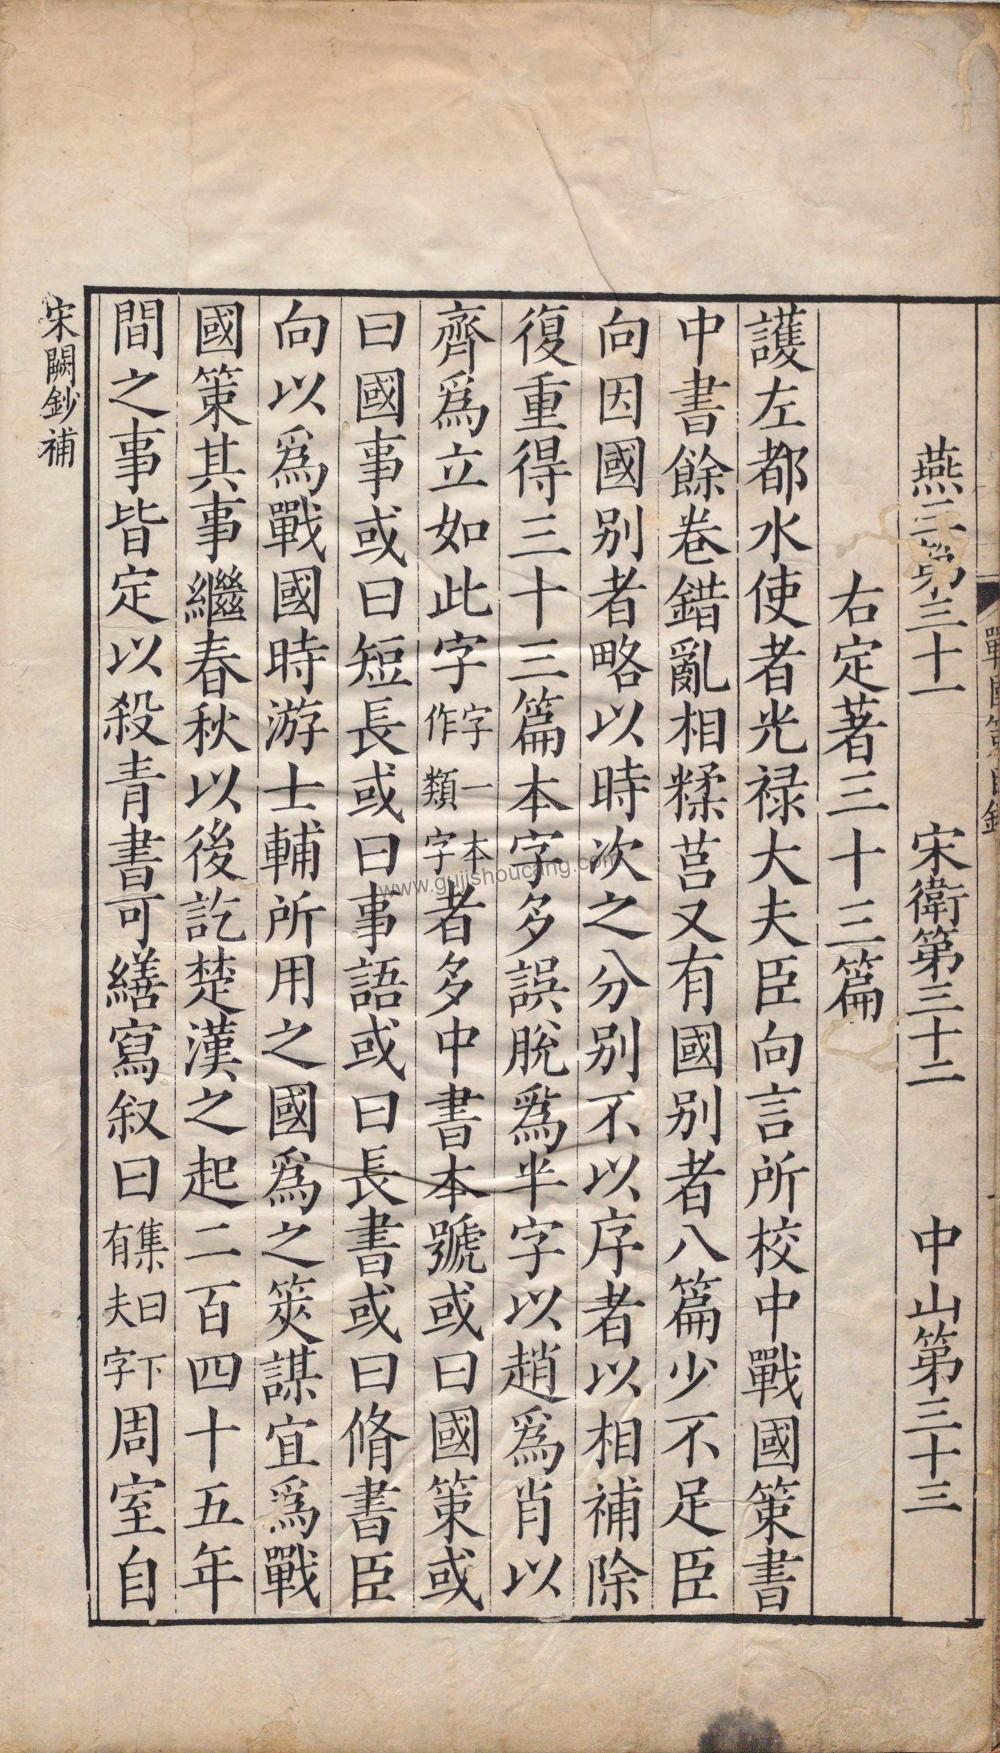 燕三第三十一　宋衛第三十二　中山第三十三
右定著三十三篇
護左都水使者光祿大夫臣向言所校中戰國策書
中書餘卷錯亂相糅莒又有國別者八篇少不足臣
向因國別者略以時次之分別不以序者以相補除
復重得三十三篇本字多誤脫爲半字以趙爲肖以
齊爲立如此字字一本作類字者多中書本號或曰國策或
曰國事或曰短長或曰事語或曰長書或曰脩書臣
向以爲戰國時游士輔所用之國爲之筴謀宜爲戰
國策其事繼春秋以後訖楚漢之起二百四十五年
間之事皆定以殺青書可繕寫叙曰集曰下有夫字周室自
宋闕鈔補
www.gujishoucang.com